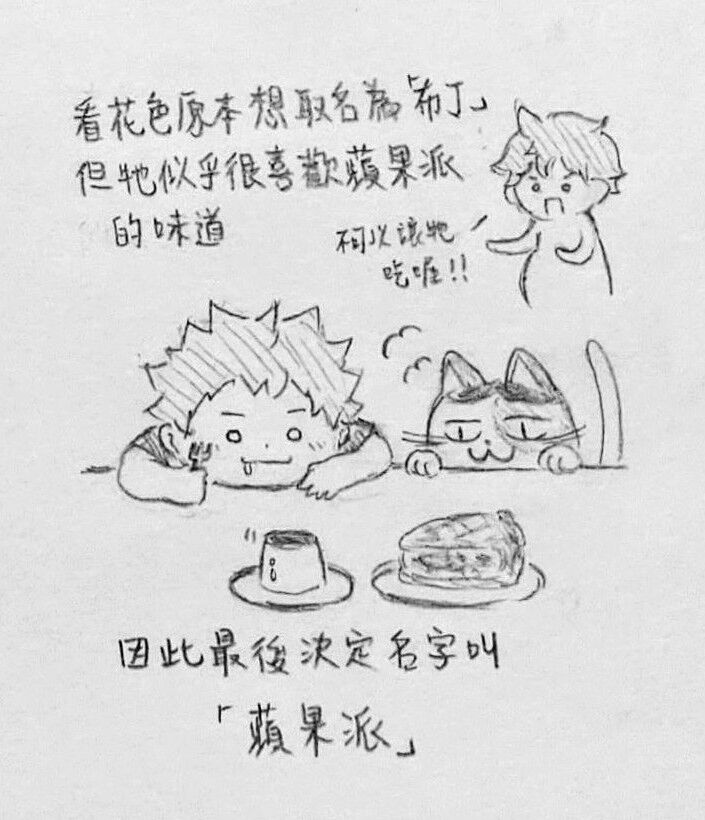 看花色原本想取名為「布丁」
但牠似乎很喜歡蘋果派
的味道
不可以讓牠
吃喔!!
因此最後決定名字叫
「蘋果派」